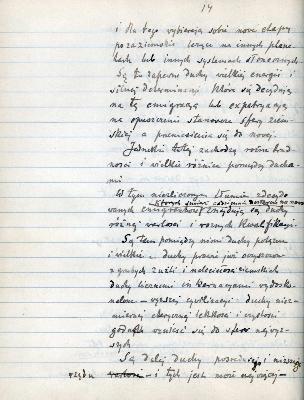 14
i dla tego wybierają sobie nowe etapy
pozaziemskie leżące na innych plane-
tach lub innych systemach słonecznych
Są to zapewne duchy wielkiej energii i
silnej determinacji które się decydują
na tę emigrację lub
na opuszczenie stanowcze sfery ziem-
skiej a przeniesienia się do nowej.
Jednakże tutaj zachodzą różne trud
ności i wielkie różnice pomiędzy ducha-
mi.
W tym niezliczonym tłumie zdecydo
których śmierć
wanych emigrantów znajdują się duchy
różnej wartości i różnych kwalifikacyi.
Są tam pomiędzy nimi duchy potężne
i wielkie – duchy prawie już oczyszczone
z grubych żużli i naleciałości ziemskich
duchy licznemi inkarnacyami wydosko-
nalone – wyższej cywilizacyi – duchy niez-
miernej eterycznej lekkości i czystości
godnych wznieść się do sfer najwyż-
szych
Są dalej duchy pośredniego i niższego
rzędu – i tych jest może najwięcej –